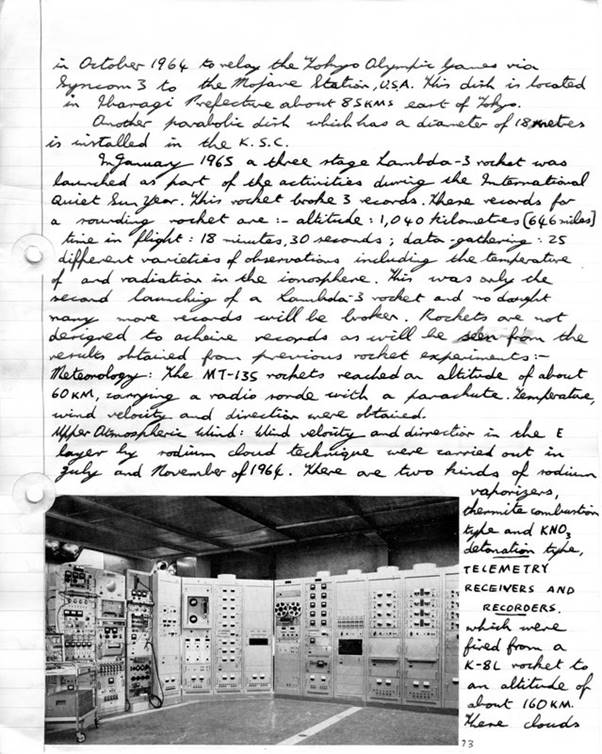 in October 1964 to relay the Tokyo Olympic Games via
Syncom 3 to the Mojave Station, U.S.A. This dish is located
in Ibaragi Prefective about 85KMS east of Tokyo.
Another parabolic dish which has a diameter of 18 metres
is installed in the K.S.C.
In January 1965 a three stage Lambda-3 rocket was
launched as part of the activities during the International
Quiet Sun Year. This rocket broke 3 records. These records for
a sounding rocket are :- altitude : 1,040 kilometres (646 miles)
time in flight : 18 minutes, 30 seconds ; data-gathering : 25
different varieties of observations including the temperature
of and radiation in the ionosphere. This was only the
second launching of a Lambda-3 rocket and no dought
many more records will be broken. Rockets are not
designed to acheive records as will be seen from the
results obtained from previous rocket experiments :-
Meteorology : The MT-135 rockets reached an altitude of about
60KM, carrying a radio sonde with a parachute. Temperature,
wind velocity and direction were obtained.
Upper Atmospheric Wind : Wind velocity and direction in the E
layer by sodium cloud technique were carried out in
July and November of 1964. There are two kinds of sodium
vaporizers,
thermite combustion
type and KNO3
detonation type,
TELEMETRY
RECEIVERS AND
RECORDERS.
which were
fired from a
K-8L rocket to
an altitude of
about 160KM.
These clouds
73